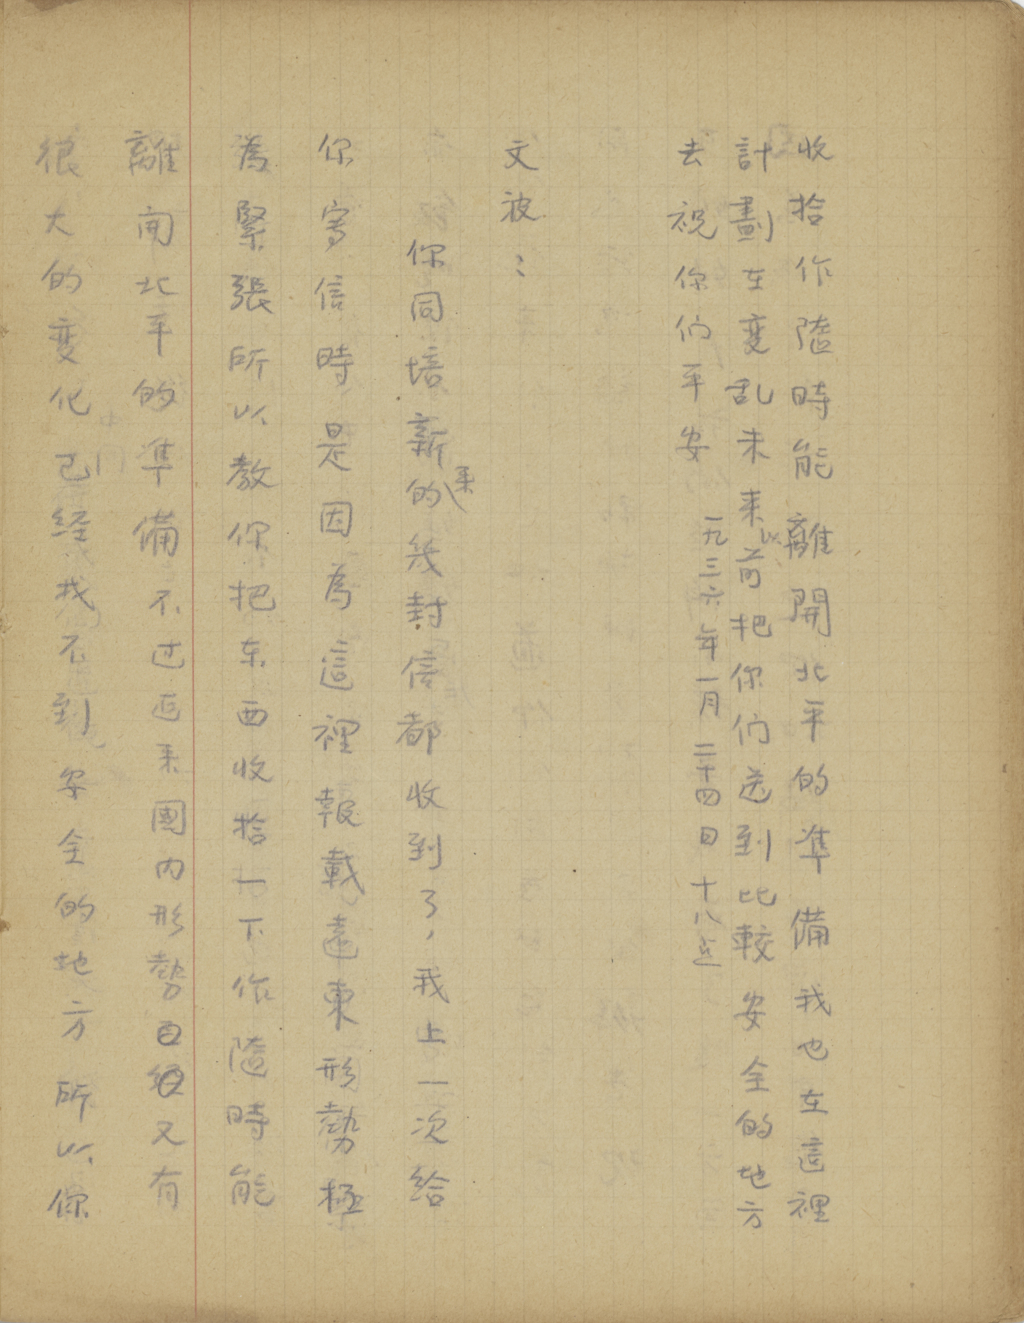 收拾作隨時能離開北平的準備我也在這裡
計劃在变乱未来以前把你们送到比較安全的地方
去祝你们平安
一九三六年一月二十四日十八点
文波：
你同培新来的幾封信都收到了,我上一次給
你寫信時是因為這裡報載遠東形勢極
為緊張所以教你把东西收拾一下作隨時能
離開北平的準備不过近来國内形勢又有
很大的变化已经找不到安全的地方所以你